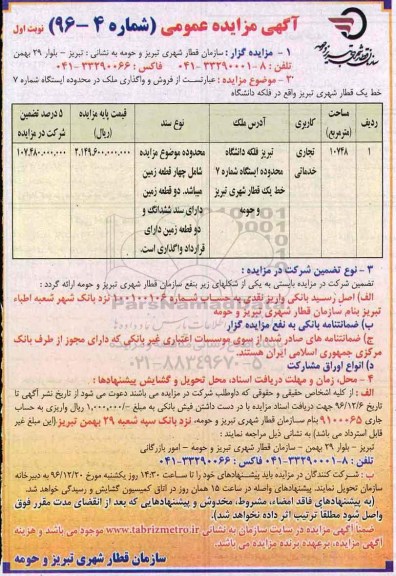 آگهی مزایده عمومی (شماره ۴ -۹۶) نوبت اول
سازمان قطار شهری تبریز و حومه
۱ - مزایده گزار : سازمان قطار شهری تبریز و حومه به نشانی : تبریز - بلوار ۲۹ بهمن
تلفن : ۸-۳۳۲۹۰۰۰۱-۰۴۱ فاکس : ۳۳۲۹۰۰۶۶-۰۴۱
۲ - موضوع مزایده : عبارتست از فروش و واگذاری ملک در محدوده ایستگاه شماره ۷
خط یک قطار شهری تبریز واقع در فلکه دانشگاه
ردیف مساحت (مترمربع) کاربری آدرس ملک نوع سند قیمت پایه مزایده (ریال) ۵ درصد تضمین شرکت در مزایده
۱ ۱۰۷۴۸ تجاری خدماتی تبریز فلکه دانشگاه محدوده ایستگاه شماره ۷ خط یک قطار شهری تبریز و حومه محدوده موضوع مزایده شامل چهار قطعه زمین میباشد. دو قطعه زمین دارای سند ششدانگ و دو قطعه زمین دارای قرارداد واگذاری است. ۲.۱۴۹.۶۰۰.۰۰۰.۰۰۰ ۱۰۷.۴۸۰.۰۰۰.۰۰۰
۳ - نوع تضمین شرکت در مزایده :
تضمین شرکت در مزایده بایستی به یکی از شکلهای زیر بنفع سازمان قطار شهری تبریز و حومه ارائه گردد :
الف) اصل رسید بانکی واریز نقدی به حساب شماره ۱۰۰۱۰۰۱۰۶ نزد بانک شهر شعبه اطباء
تبریز بنام سازمان قطار شهری تبریز و حومه
ب) ضمانتنامه بانکی به نفع مزایده گزار
ج) ضمانتنامه های صادر شده از سوی موسسات اعتباری غیر بانکی که دارای مجوز از طرف بانک
مرکزی جمهوری اسلامی ایران هستند.
د) انواع اوراق مشارکت
۴ - محل زمان و مهلت دریافت اسناد، محل تحویل و گشایش پیشنهادها :
الف : از کلیه اشخاص حقیقی و حقوقی که داوطلب شرکت در مزایده می باشند دعوت می شود از تاریخ نشر آگهی تا
تاریخ ۹۶/۱۲/۶ جهت دریافت اسناد مزایده با در دست داشتن فیش بانکی به مبلغ ۱.۰۰۰.۰۰۰/- ریال واریزی به حساب
جاری ۹۱۰۰۰۶۵ بنام سازمان قطار شهری تبریز و حومه، نزد بانک سپه شعبه ۲۹ بهمن تبریز (این مبلغ غیر
قابل استرداد می باشد) به نشانی ذیل مراجعه نمایند :
تبریز - بلوار ۲۹ بهمن - سازمان قطار شهری تبریز و حومه - امور بازرگانی
تلفن : ۸-۳۳۲۹۰۰۰۱-۰۴۱ فاکس : ۳۳۲۹۰۰۶۶-۰۴۱
ب : شرکت کنندگان در مزایده باید پیشنهادهای خود را تا ساعت ۱۴:۳۰ روز یکشنبه مورخ ۹۶/۱۲/۲۰ به دبیرخانه
سازمان تحویل نمایند. پیشنهادهای واصله در ساعت ۱۵ همان روز در اتاق کمیسیون گشایش و رسیدگی خواهد شد.
(به پیشنهادهای فاقد امضاء، مشروط، مخدوش و پیشنهادهایی که بعد از انقضای مدت مقرر فوق
واصل شود مطلقا ترتیب اثر داده نخواهد شد).
ضمنا آگهی مزایده در سایت سازمان به نشانی www.tabrizmetro.ir موجود می باشد و هزینه
آگهی مزایده، برعهده برنده مزایده می باشد.
سازمان قطار شهری تبریز و حومه
ParsNamadData
۰۲۱-۸۸۳۴۹۶۷۰-۵